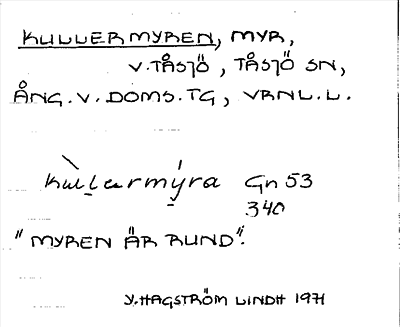 KULLERMYREN, MYR,
V. TÅSJÖ, TÅSJÖ SN,
ÅNG. V. DOMS. TG, VRNL. L.
kùl̲armý̲ra Gn 53
340
"MYREN ÄR RUND".
Y. HAGSTRÖM LINDH 1971